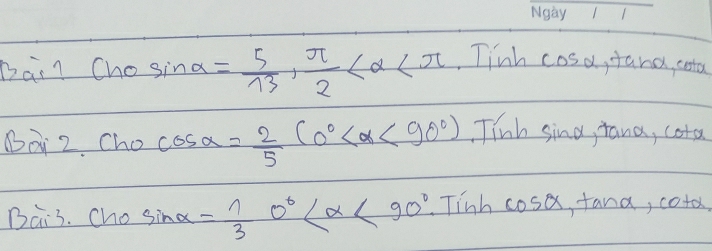 Ngày / /
Bài 1 Cho sinα = 5/13, π/2 < α < π. Tính cosα, tanα, cotα
Bài 2. Cho cosα = 2/5 (0° < α < 90°). Tính sinα, tanα, cotα
Bài 3. Cho sinα = 1/3 0° < α < 90°. Tính cosα, tanα, cotα.